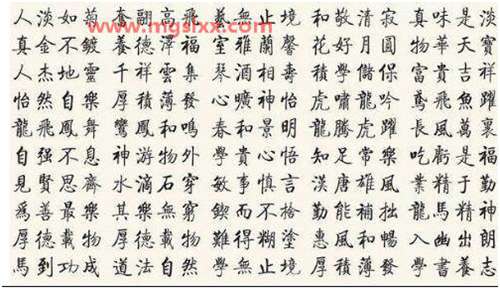 www.mgslxx.com
人淡如菊 奮翮高飛 藝無止境 和敬清寂 真味是淡
真金不鍍 養德澤福 室雅蘭馨 花好月圓 物華天寶
人杰地靈 千祥雲集 琴酒相壽 積學儲保 富貴吉祥
怡然自樂 厚積薄發 心曠神怡 虎嘯龍吟 鳶飛魚躍
龍飛鳳舞 鸞鳳和鳴 春和景明 龍騰虎躍 長風萬裏
自强不息 神游物外 學貴心悟 知足常樂 吃虧是福
見賢思齊 水滴石穿 敏事慎言 漢唐雄風 業精于勤
為善最樂 其樂無窮 鍥而不捨 勤能補拙 龍馬精神
厚德載物 厚德載物 難得糊塗 惠風和暢 入幽出朗
馬到功成 道法自然 學無止境 厚積薄發 學書養志